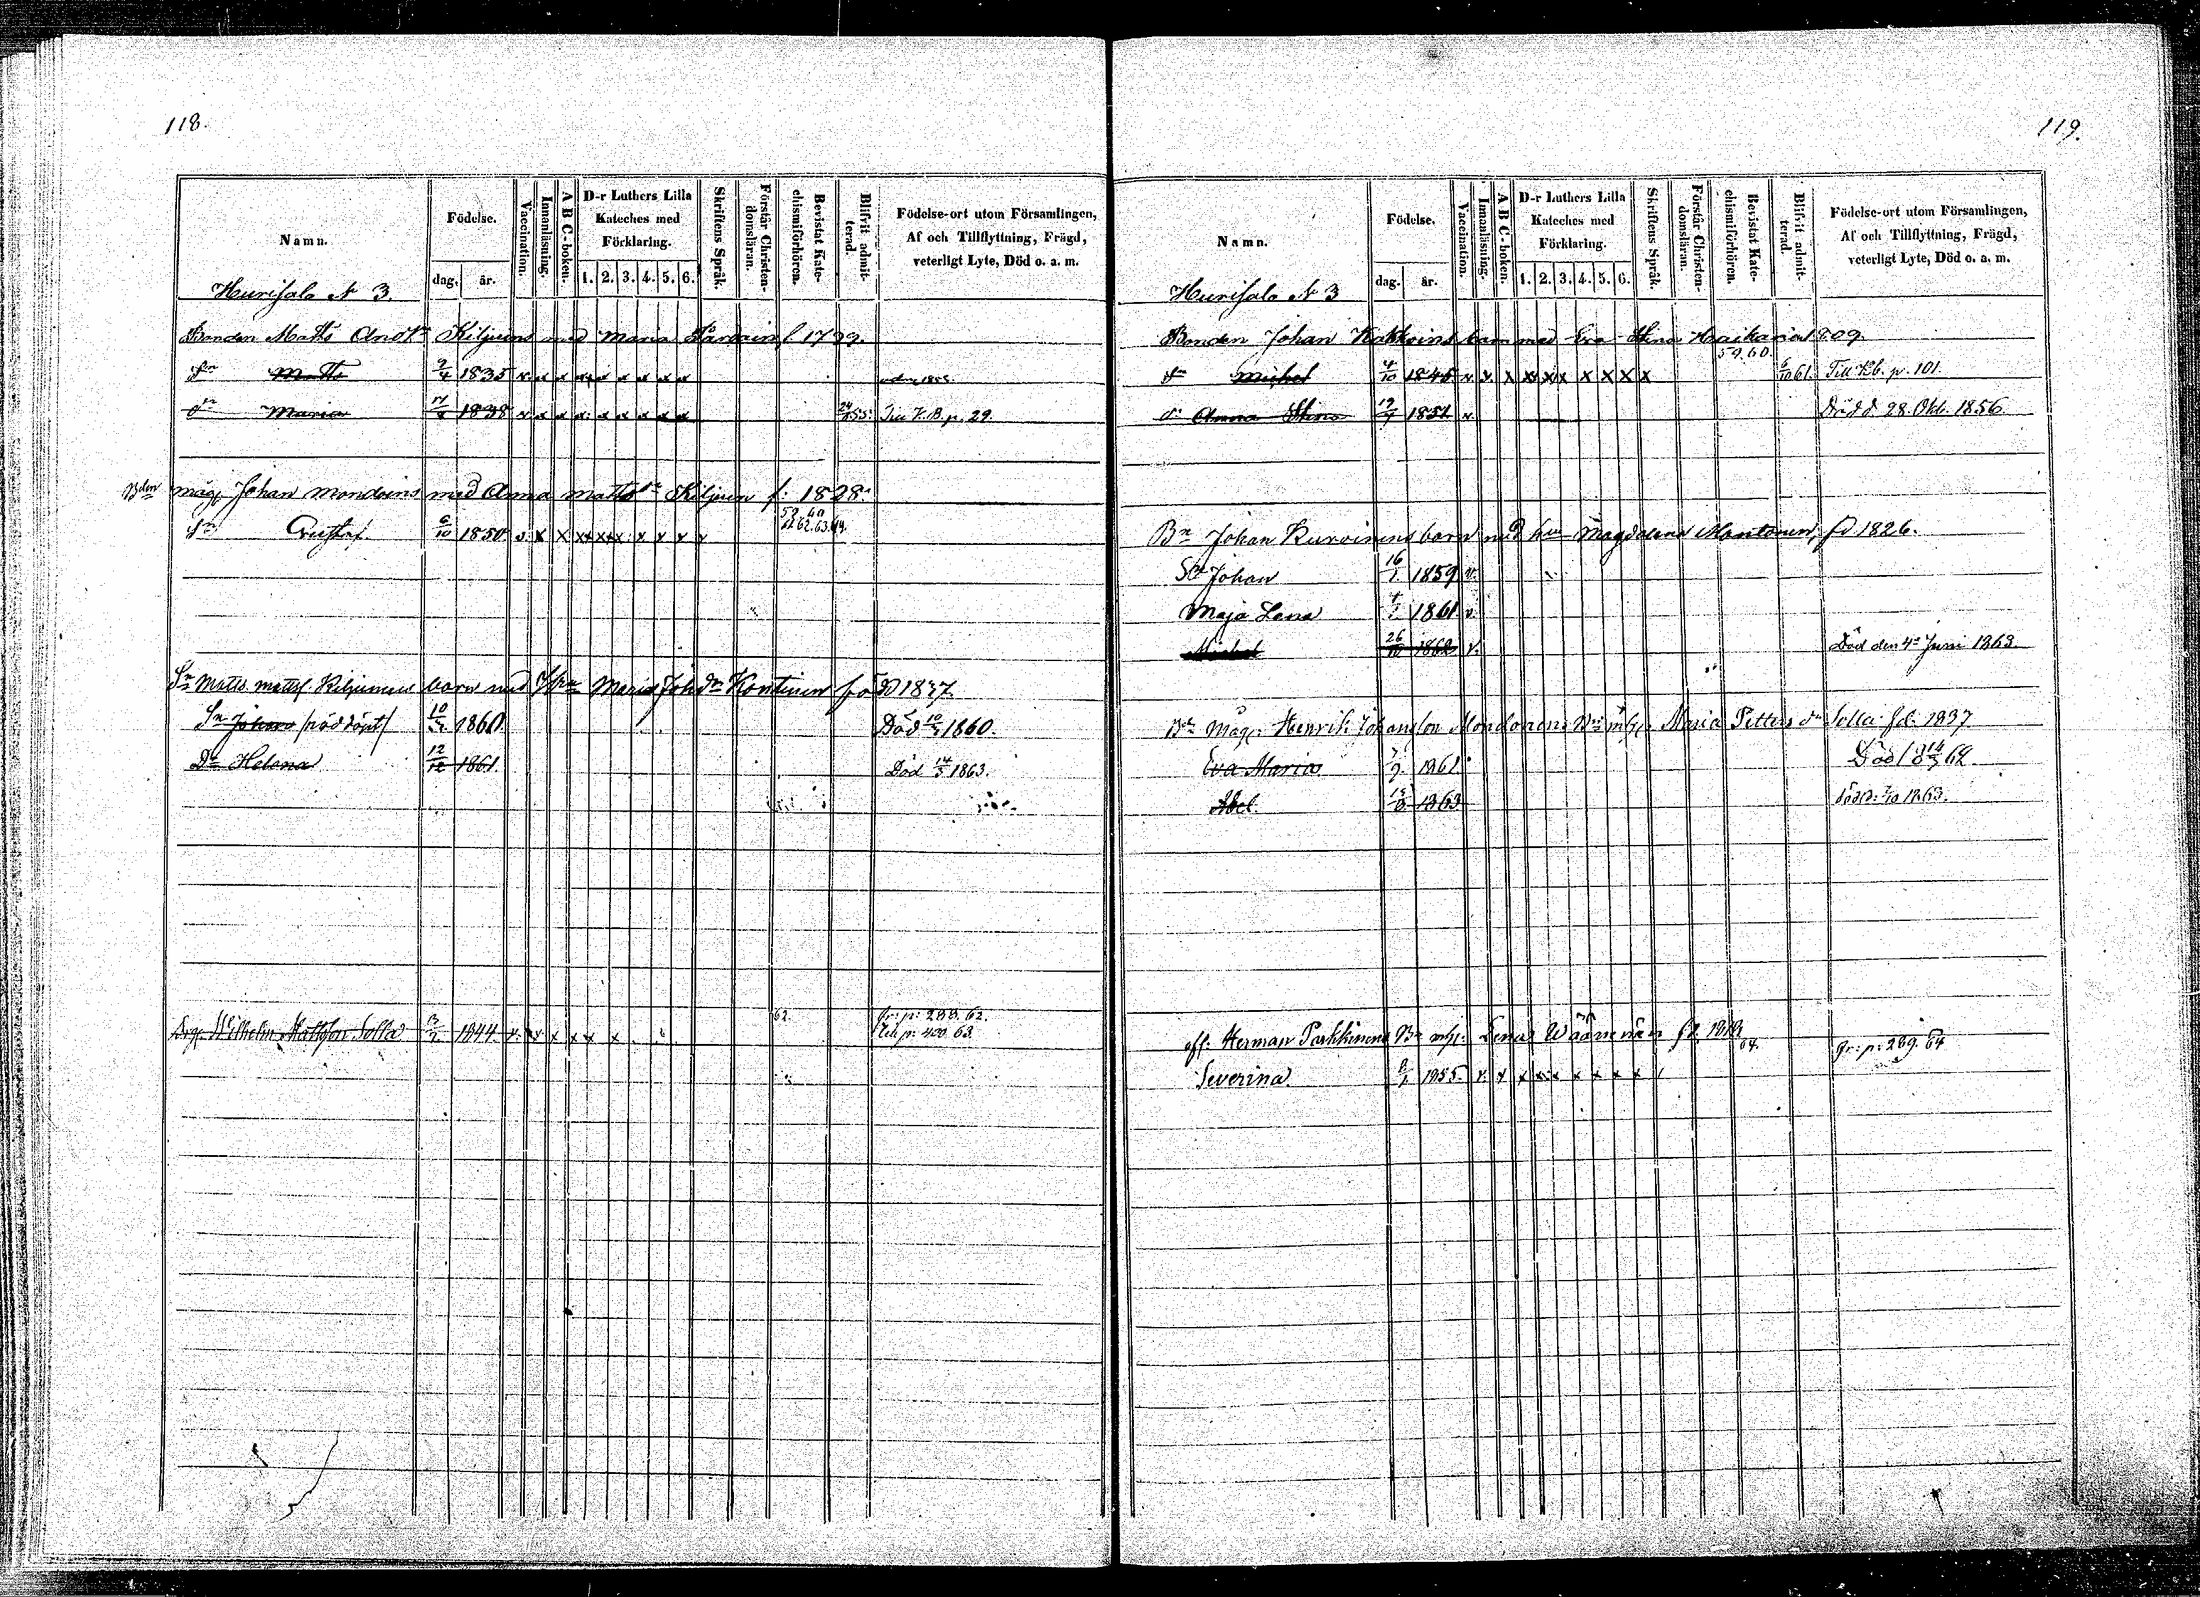 118.
Namn.
Födelse.
dag.
år.
Vaccination.
Innanläsning.
A B C-boken.
D-r Luthers Lilla
Kateches med
Förklaring.
1. 2. 3. 4. 5. 6.
Skriftens Språk.
Förstår Christen-
domsläran.
Bevistat Kate-
chismiförhören.
Blifvit admit-
terad.
Födelse-ort utom Församlingen,
Af och Tillflyttning, Frägd,
veterligt Lyte, Död o. a. m.
Hurisalo № 3.
Bonden Matts And. Kiljuns med Maria f. 1799.
Sn Matts 9/4 1835 v. x x x x x x x x
Dr Maria 17/4 1838 v x x x x x x x x 24/55. Till K.B. p. 29.
Bden måg Johan Mondoins med Anna Mattsdr Kiljun f: 1828.
59. 60
Sn Gustaf. 6/10 1850 v. x x x x x x x x x 62. 63. 64.
Sn Matts Matts Kiljunens barn med Maria Joh dr Kontinen född 1837
Sn Johan /nöddöpt/ 10/ 1860 Död 10/ 1860.
Dr Helena 12/12 1861. Död 14/5 1863.
62. fr: p: 288. 62.
Drg. Wilhelm Mattsson Solla 1844 v. x x x x x Till p. 400. 63.
119.
Namn.
Födelse.
dag.
år.
Vaccination.
Innanläsning.
A B C-boken.
D-r Luthers Lilla
Kateches med
Förklaring.
1. 2. 3. 4. 5. 6.
Skriftens Språk.
Förstår Christen-
domsläran.
Bevistat Kate-
chismiförhören.
Blifvit admit-
terad.
Födelse-ort utom Församlingen,
Af och Tillflyttning, Frägd,
veterligt Lyte, Död o. a. m.
Hurisalo № 3
Bonden Johan barn med Eva Stina 1809.
59. 60.
Sn Michel 4/10 1845 v. x. x x x x x x x x 6/10 61. Till Kb. p. 101.
Dr Anna Stina 19/ 1851 v. Död d 28. Okt. 1856.
Bn Johan Kurvinens barn med hu Magdalena Montonen, fd 1826.
Sn Johan 16/1 1859 v.
Maja Lena 1861 v.
Michel 26/10 1862 v. Död den 4de Juni 1863.
Bde Måg. Henrik Johansson Mondonens Bn m/h. Maria Petters dr Solla fd. 1837
Eva Maria 7/9 1861. Död 18 14/5 62.
Abel 1863 död d: 7/10 1863.
aff. Herman Parkkinens Bn m/h: Lena Wäänenän fd. 1819
64. fr: p: 289. 64
Severina 1855. v. x x x x x x x x